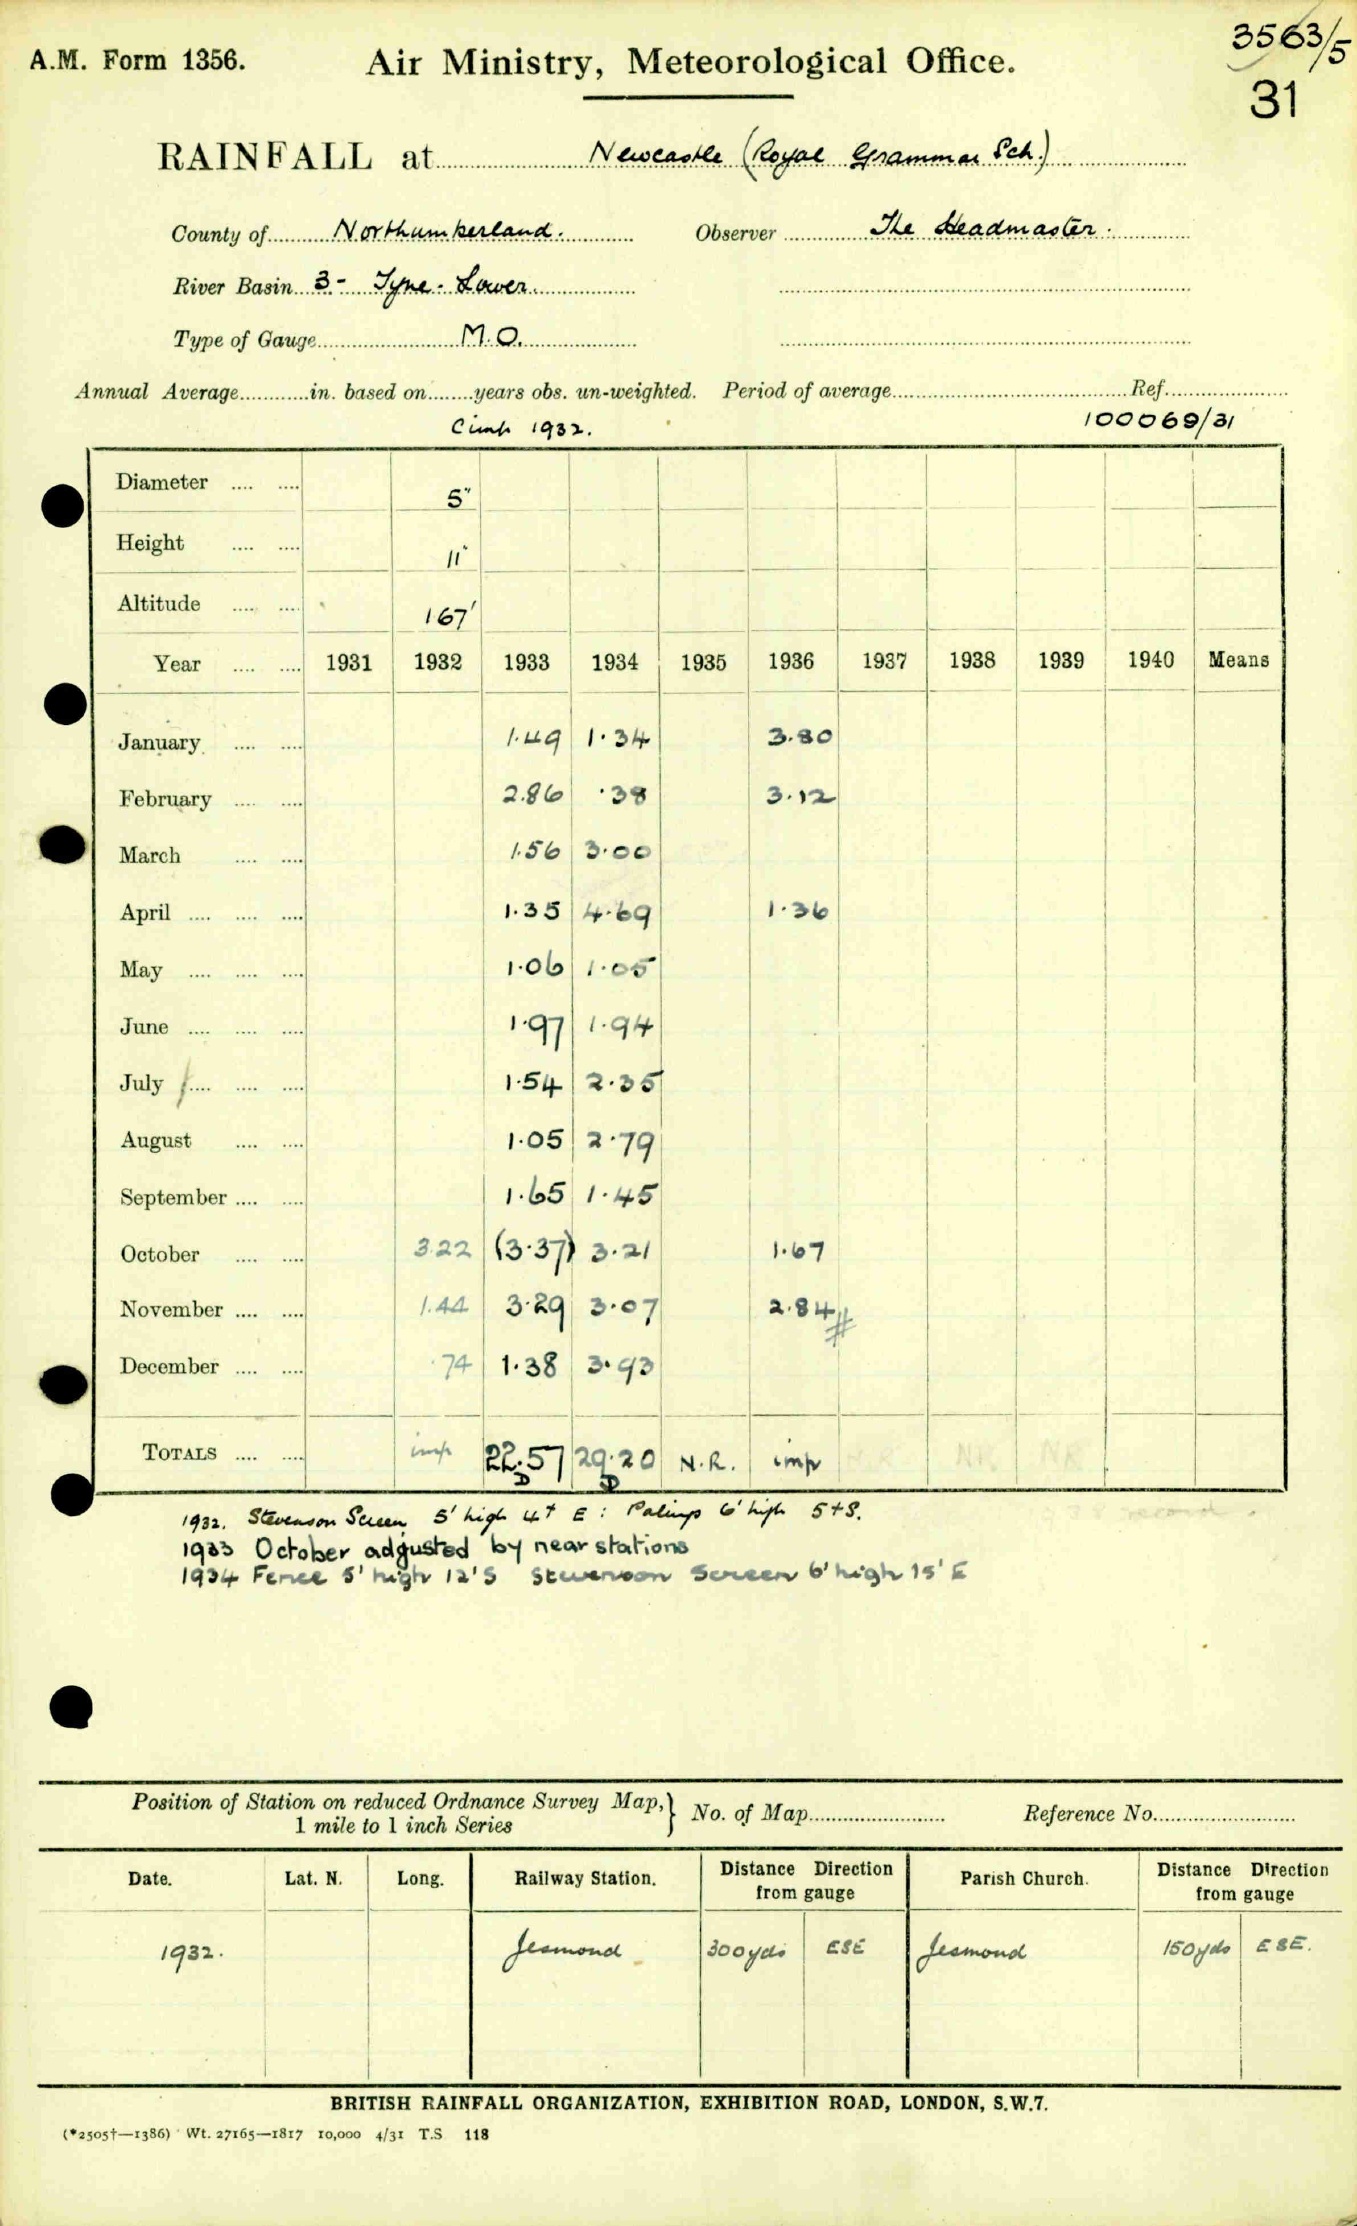 3563/5
A.M. Form 1356. Air Ministry, Meteorological Office.
31
RAINFALL at Newcastle (Royal Grammar Sch.)
County of Northumberland. Observer The Headmaster.
River Basin 3 - Tyne - Lower.
Type of Gauge M.O.
Annual Average in. based on years obs. un-weighted. Period of average Ref.
1932. 100069/31
Diameter 5"
Height 11"
Altitude 167'
Year 1931 1932 1933 1934 1935 1936 1937 1938 1939 1940 Means
January 1.49 1.34 3.80
February 2.86 .38 3.12
March 1.56 3.00
April 1.35 4.69 1.36
May 1.06 1.05
June 1.97 1.94
July 1.54 2.35
August 1.05 2.79
September 1.65 1.45
October 3.22 (3.37) 3.21 1.67
November 1.44 3.29 3.07 2.84 #
December .74 1.38 3.93
TOTALS imp 22.57 29.20 N.R. imp N.R. NR NR
D D
1932. Stevenson Screen 5' high 4+ E : Palings 6' high 5+S.
1933 October adjusted by near stations
1934 Fence 5' high 12'S Stevenson Screen 6' high 15' E
Position of Station on reduced Ordnance Survey Map, 1 mile to 1 inch Series } No. of Map Reference No.
Date. Lat. N. Long. Railway Station. Distance Direction from gauge Parish Church. Distance Direction from gauge
1932. Jesmond 300yds ESE Jesmond 150yds ESE.
BRITISH RAINFALL ORGANIZATION, EXHIBITION ROAD, LONDON, S.W.7.
(*2505†—1386) Wt. 27165—1817 10,000 4/31 T.S 118